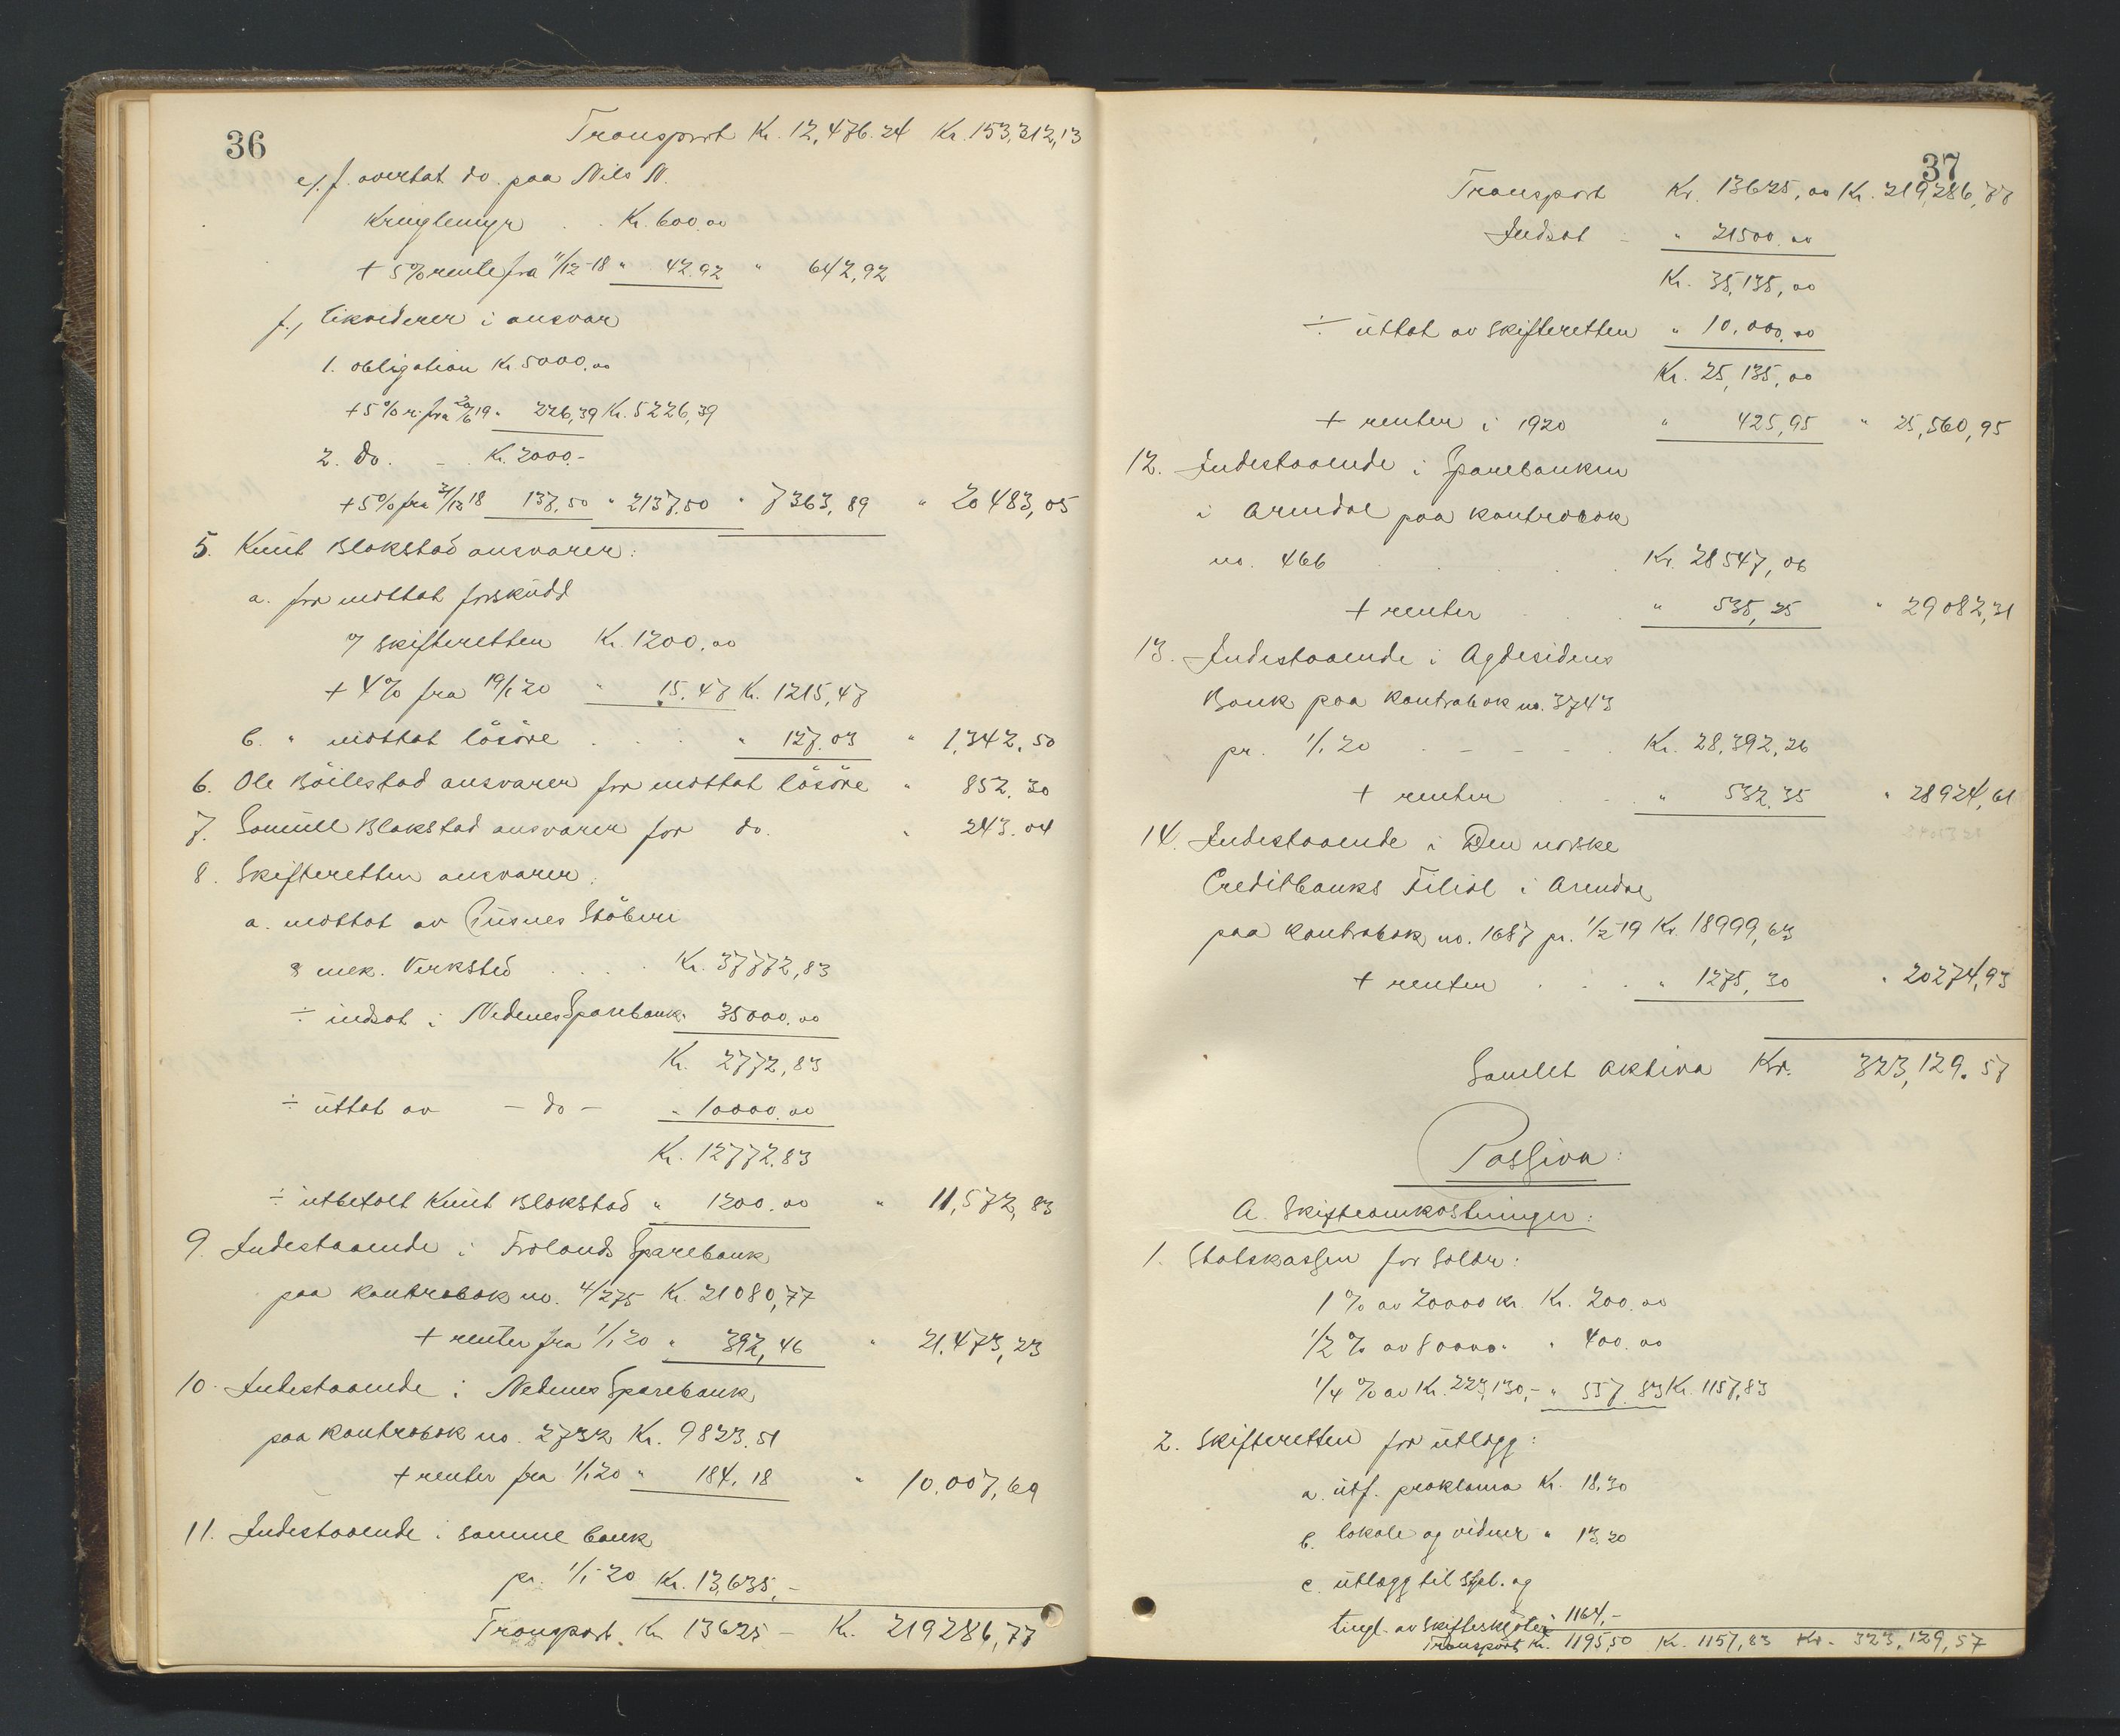 36
Transport Kr. 12,476.24 Kr. 153,312,13
e/. f. overtat do. paa Nils N.
Kringlemyr . . Kr. 600.00
+ 5% rente fra 11/12-18 " 42.92 " 642,92
f., likviderer i ansvar
1. obligation Kr. 5000.00
+5% r. fra 20/6 19 " 226,39 Kr. 5226,39
2. do. - . Kr. 2000.-
+5% fra 31/12 18 137,50 " 2137.50 " 7363,89 " 20483,05
5. Knut Blakstad ansvarer:
a. for mottat forskudd
av skifteretten Kr. 1200.00
+ 4% fra 19/1 20 " 15.47 Kr. 1215,47
b. " mottat løsøre . . . " 127.03 " 1,342.50
6. Ole Bøilestad ansvarer for mottat løsøre " 852.30
7. Samuel Blakstad ansvarer for do. " 243.04
8. Skifteretten ansvarer:
a. mottat av Pusnes Støberi
& mek. Verksted . . . . Kr. 37772,83
÷ indsat i Nedenes Sparebank " 35000.00
Kr. 2772,83
÷ uttat av - do - " 10000.00
Kr. 12772.83
÷ utbetalt Knut Blakstad " 1200.00 " 11,572,83
9. Indestaaende i Frolands Sparebank
paa kontrabok no. 4/275 Kr. 21080,77
+ renter fra 1/1 20 " 392,46 " 21.473,23
10. Indestaaende i Nedenes Sparebank
paa kontrabok no. 2732 Kr. 9823.51
+ renter fra 1/1 20 " 184.18 " 10.007,69
11. Indestaaende i samme bank
pr. 1/1-20 Kr. 13,635,-
Transport. Kr. 13635 - Kr. 219286,77
37
Transport Kr. 13635,00 Kr. 219,286,77
Indsat - " 21500.00
Kr. 35,135,00
÷ uttat av skifteretten " 10.000,00
Kr. 25,135,00
+ renter i 1920 " 425,95 " 25,560,95
12. Indestaaende i Sparebanken
i Arendal paa kontrabok
no. 466 . . . . Kr. 28547,06
+ renter . . . " 535,25 " 29082,31
13. Indestaaende i Agdesidens
Bank paa kontrabok no. 3743
pr. 1/1 20 - - - . Kr. 28,392,26
+ renter . . " 532,35 " 28924,61
14. Indestaaende i Den norske
Creditbanks Filial i Arendal
paa kontrabok no. 1687 pr. 1/2-19 Kr. 18999,63
+ renter . . . " 1275,30 " 20274,93
Samlet aktiva Kr. 323,129.57
Passiva:
A. Skifteomkostninger:
1. Statskassen for salær:
1 % av 20000 kr. Kr. 200.00
1/2 % av 80000. " 400.00
1/4 % av Kr. 223,130,- " 557.83 Kr. 1157,83
2. Skifteretten for utlægg:
a. utf. proklama Kr. 18.30
b. lokale og vidner " 13.20
c. utlægg til stpl. og
tingl. av skifteskjøter " 1164,-
Transport Kr. 1195,50 Kr. 1157,83 Kr. 323,129,57